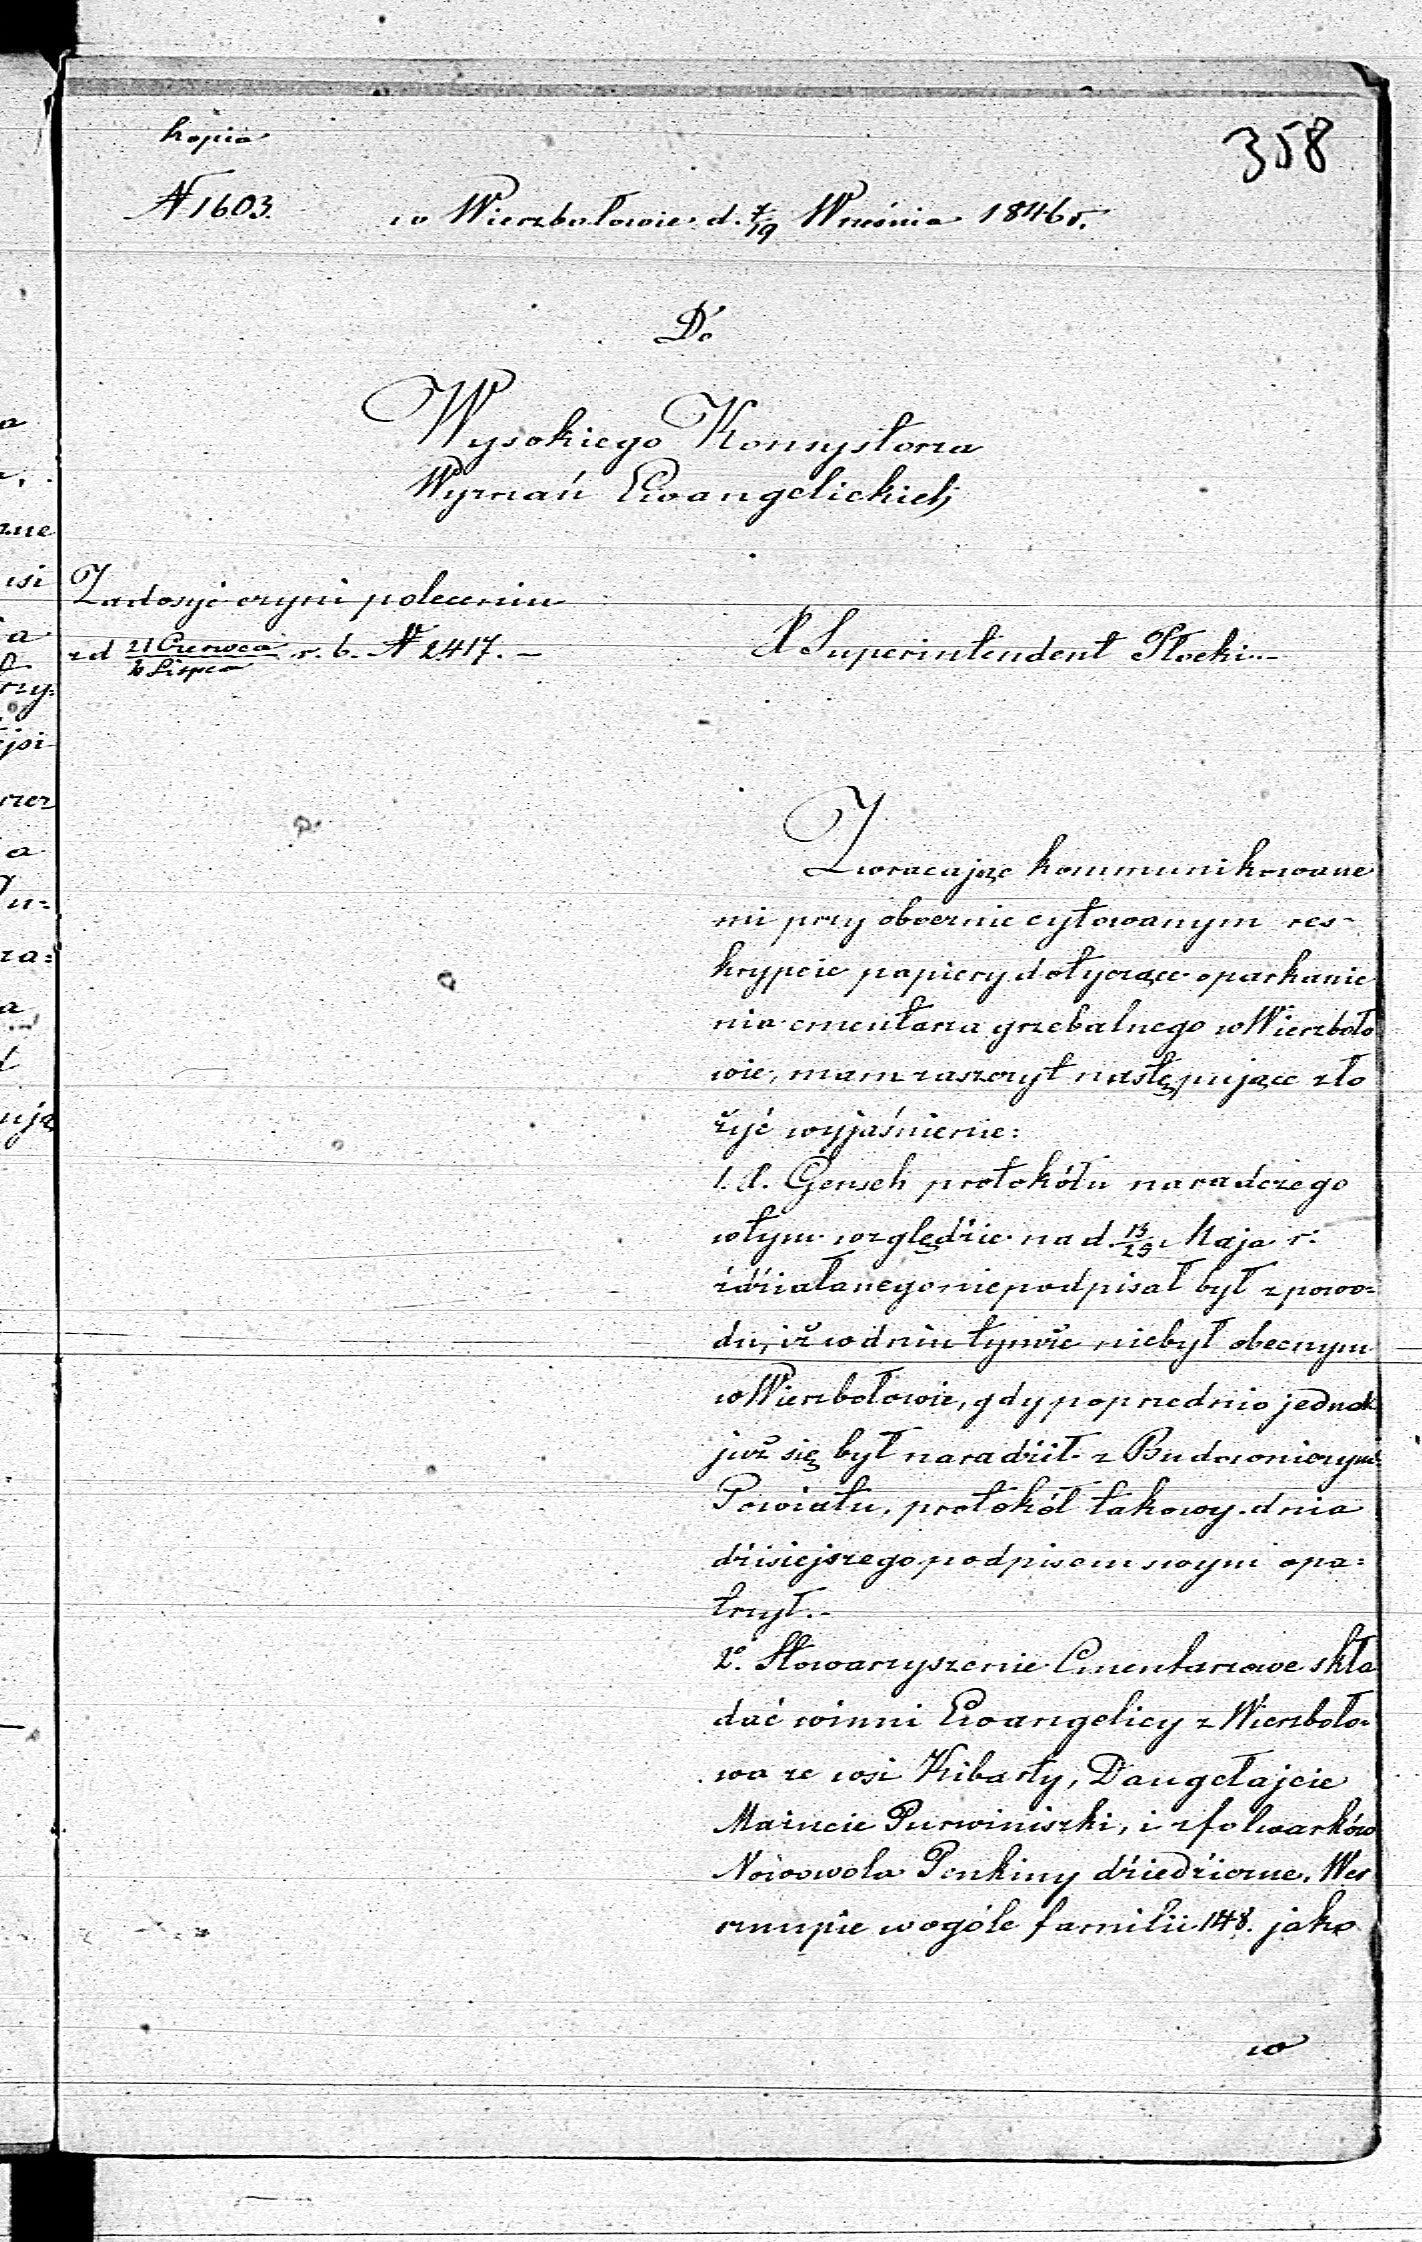 kopia
358
N 1603.
w Wierzbołowie d. 7/19 Września 1846 r.
Do
Wysokiego Konsystorza
Wyznań Ewangelickich
Zadosyć czyni poleceniu
zd 21 Czerwca / 6 Lipca r. b. N 2417. –
X Superintendent Płocki. –
Zwracając kommunikowane
mi przy obocznie cytowanym res-
krypcie papiery dotyczące oparkanie
nia cmentarza grzebalnego w Wierzboło
wie, mam zaszczyt następujące zło
żyć wyjaśnienie:
1. X. Gensch protokółu naradczego
w tym względzie na d. Maja r:
zdziałanego niepodpisał był z powo=
du, iż w dniu tymże niebył obecnym
w Wierzbołowie, gdy poprzednio jednak
już się był naradził z Budowniczym
Powiatu, protokół takowy dnia
dzisiejszego podpisem swym opa=
trzył. –
2o. Stowarzyszenie Cmentarzowe skła
dać winni Ewangelicy z Wierzboło-
wa ze wsi Kibarty, Daugełajcie
Mażucie Purwiniszki, i z folwarków
Nowowola Penkiny dziedziczne, Wer
szupie w ogóle familii 148. jako
w
zne
isi
a
rzy=
ejsi
a
za=
a
ują